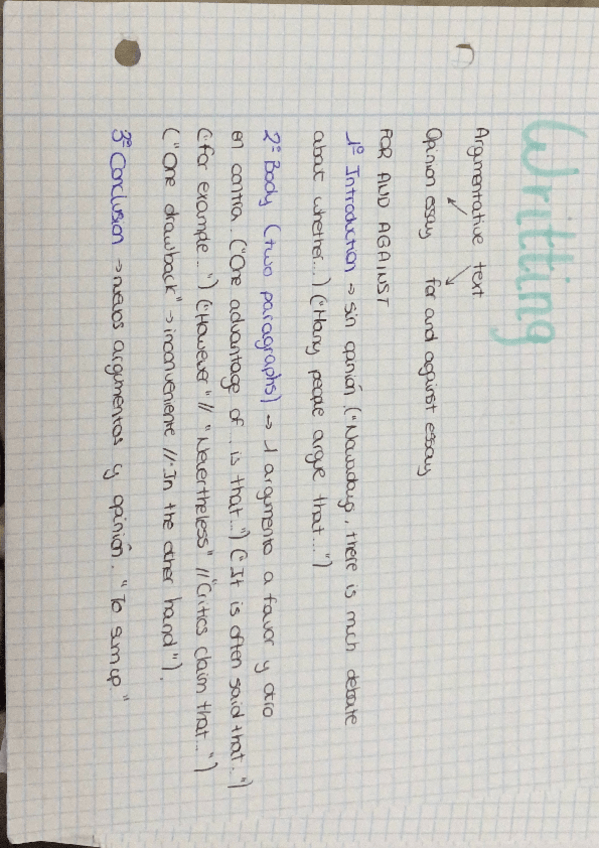 Writting
Argumentative text
Opinion essay for and against essay
FOR AND AGAINST
1º Introduction → sin opinión ("Nowadays, there is much debate
about whether...) ("Many people argue that...")
2º Body (two paragraphs) → 1 argumento a favor y otro
en contra. ("One advantage of... is that...") ("It is often said that...")
("for example...") ("However" // "Nevertheless" // "Critics claim that...")
("One drawback" → inconveniente // "In the other hand").
3º Conclusion → nuevos argumentos y opinión. "To sum up."